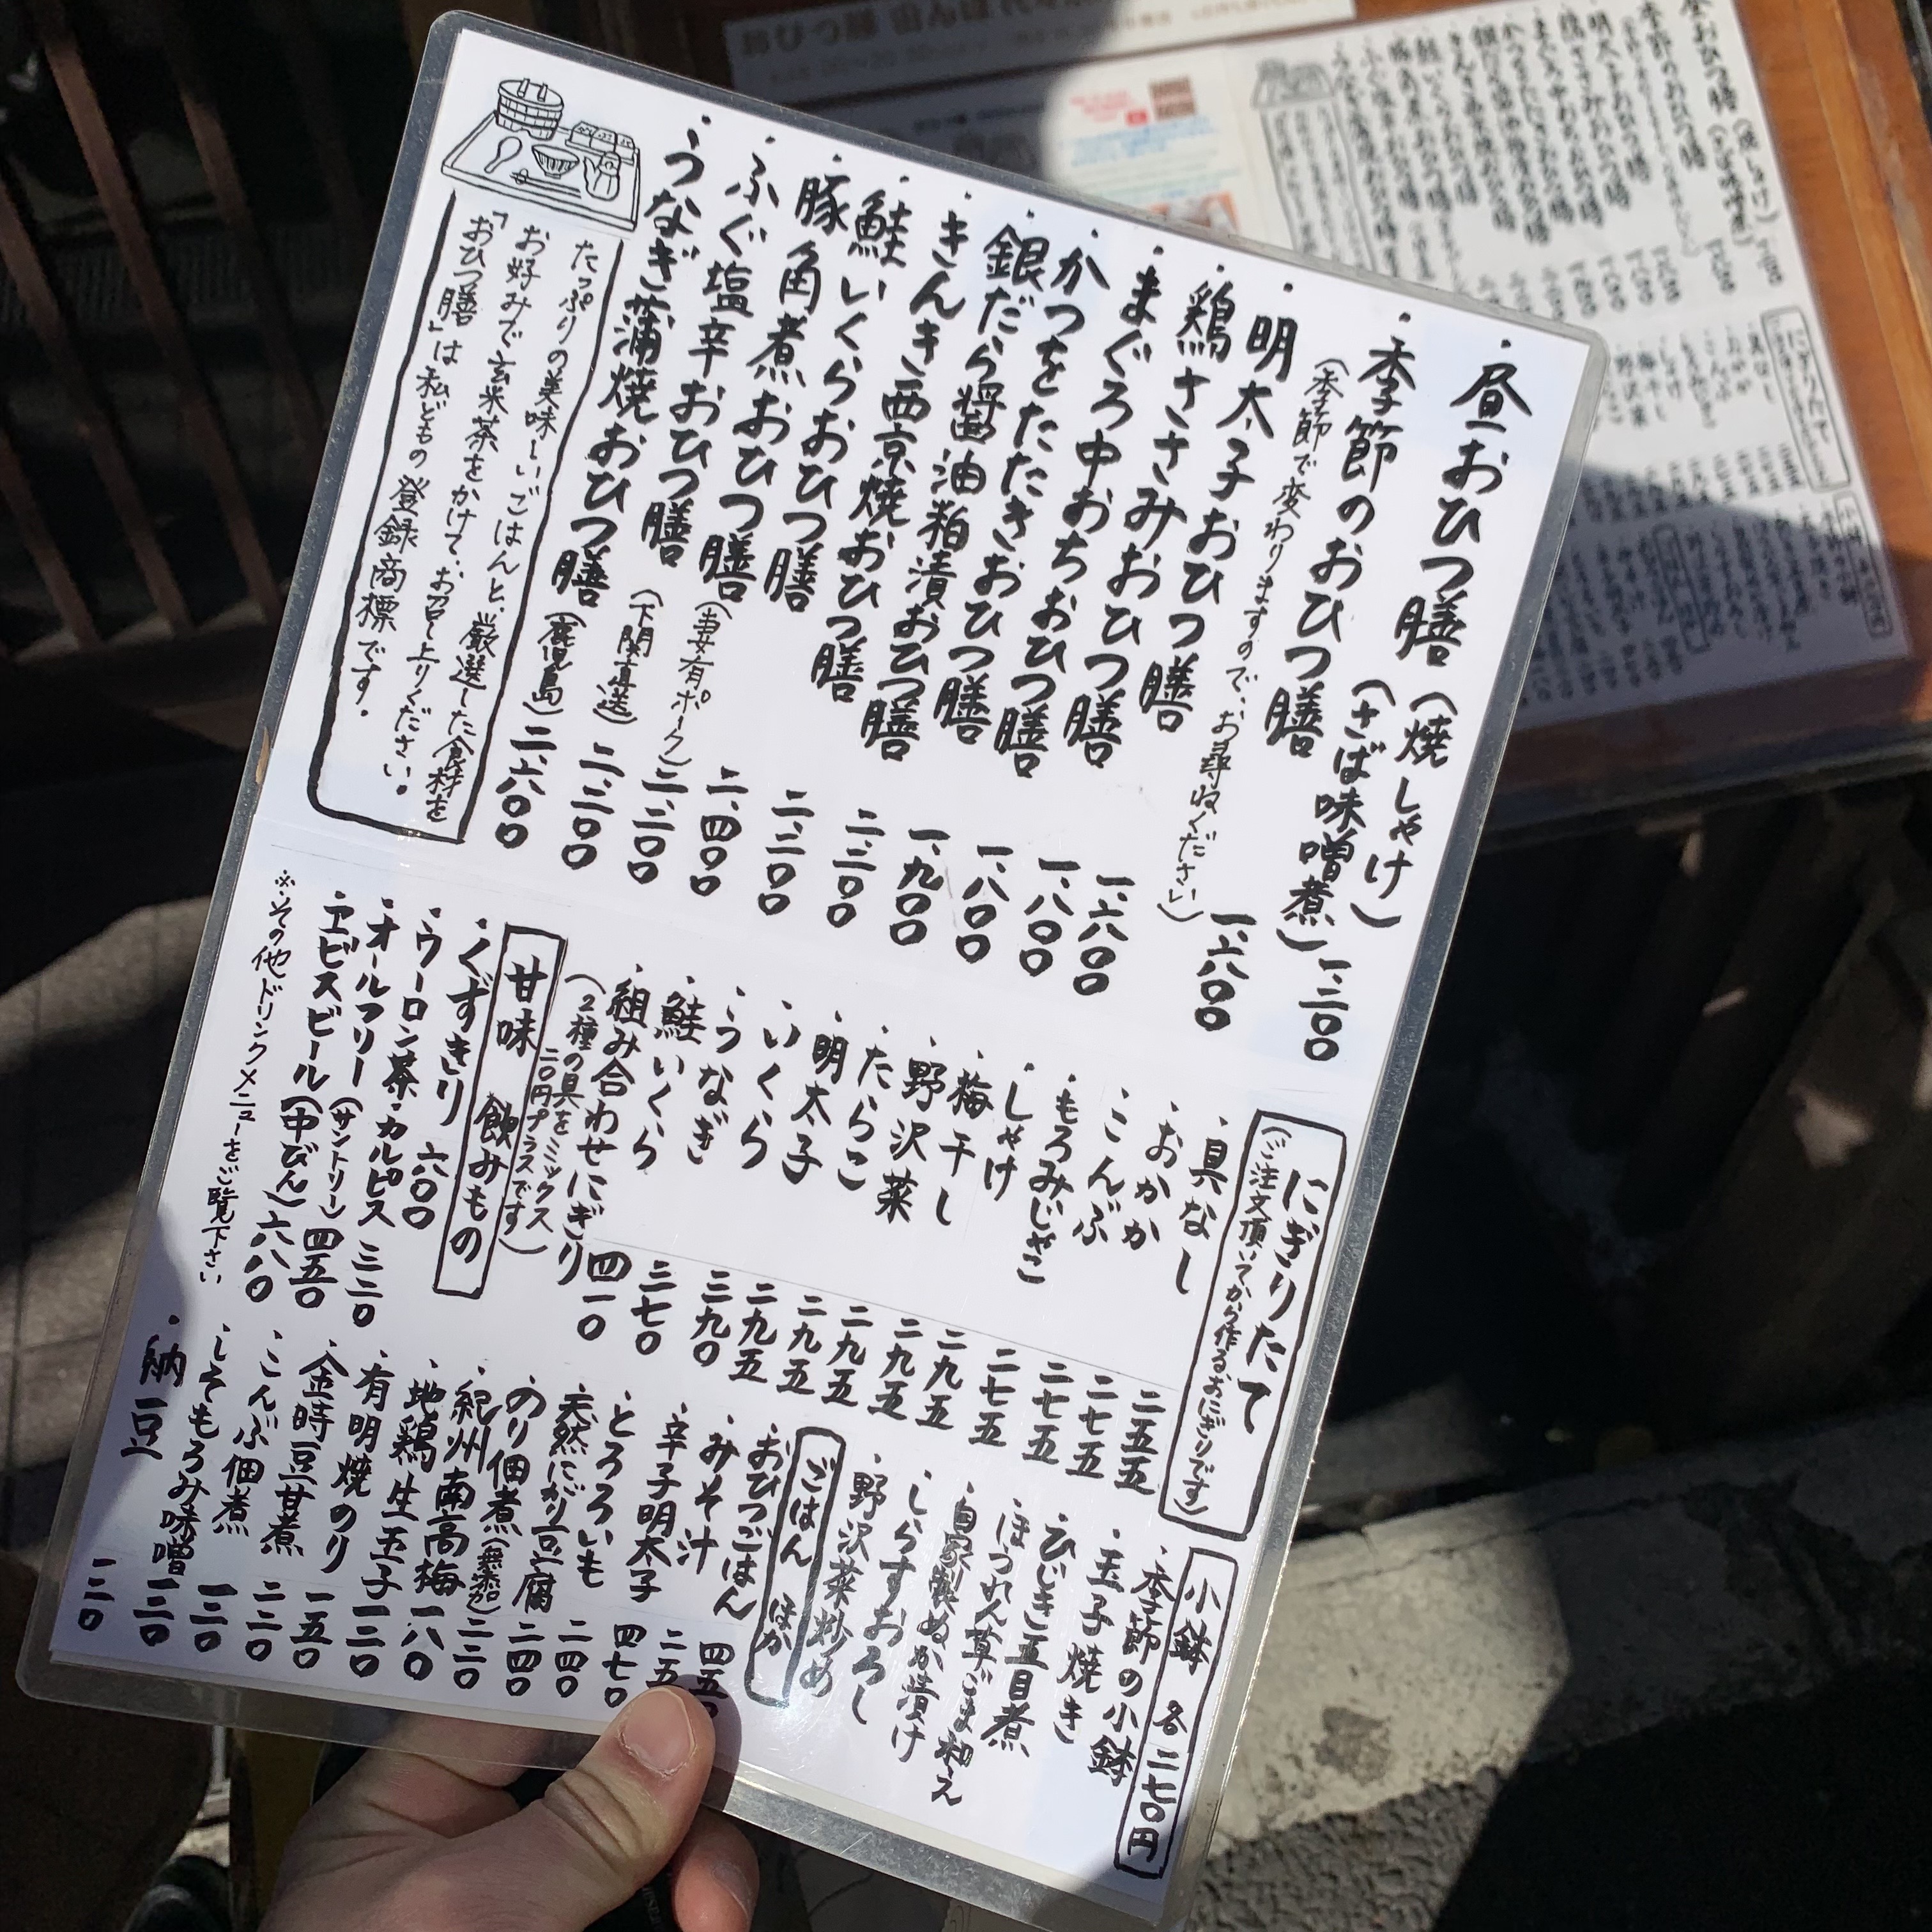 昼おひつ膳(焼しゃけ)
(さば味噌煮)一、三〇〇
・季節のおひつ膳 一、八〇〇
(季節で変わりますので、お尋ねください)
・明太子おひつ膳 一、六〇〇
・鶏ささみおひつ膳 一、八〇〇
・まぐろ中おちおひつ膳 一、八〇〇
・かつをたたきおひつ膳 一、九〇〇
・銀だら醤油粕漬おひつ膳 二、三〇〇
・きんき西京焼おひつ膳 二、三〇〇
・鮭いくらおひつ膳 二、四〇〇
・豚角煮おひつ膳(妻有ポーク)二、三〇〇
・ふぐ塩辛おひつ膳(下関直送)二、三〇〇
・うなぎ蒲焼おひつ膳(鹿児島)二、六〇〇
たっぷりの美味しいごはんと、厳選した食材を
お好みで玄米茶をかけて、お召し上りください。
「おひつ膳」は私どもの登録商標です。
にぎりたて
(ご注文頂いてから作るおにぎりです)
・具なし 二五五
・おかか 二七五
・こんぶ 二七五
・もろみじゃこ 二七五
・しゃけ 二九五
・梅干し 二九五
・野沢菜 二九五
・たらこ 二九五
・明太子 二九五
・いくら 三九〇
・うなぎ 三七〇
・鮭いくら 四一〇
・組み合わせにぎり
(2種の具をミックス
二〇円プラスです)
甘味 飲みもの
・くずきり 六〇〇
・ウーロン茶・カルピス 三二〇
・オールフリー(サントリー)四五〇
・ヱビスビール(中びん)六八〇
※その他ドリンクメニューをご覧下さい
小鉢 各二七〇円
・季節の小鉢
・玉子焼き
・ひじき五目煮
・ほうれん草ごま和え
・自家製ぬか漬け
・しらすおろし
・野沢菜炒め
ごはん ほか
・おひつごはん 四五〇
・みそ汁 二五
・辛子明太子 四七〇
・とろろいも 二四〇
・天然にがり豆腐 二四〇
・のり佃煮(無添加)二三〇
・紀州南高梅 一八〇
・地鶏生玉子 一三〇
・有明焼のり 一五〇
・金時豆甘煮 二三〇
・こんぶ佃煮 一三〇
・しそもろみ味噌 一三〇
・納豆 一二〇